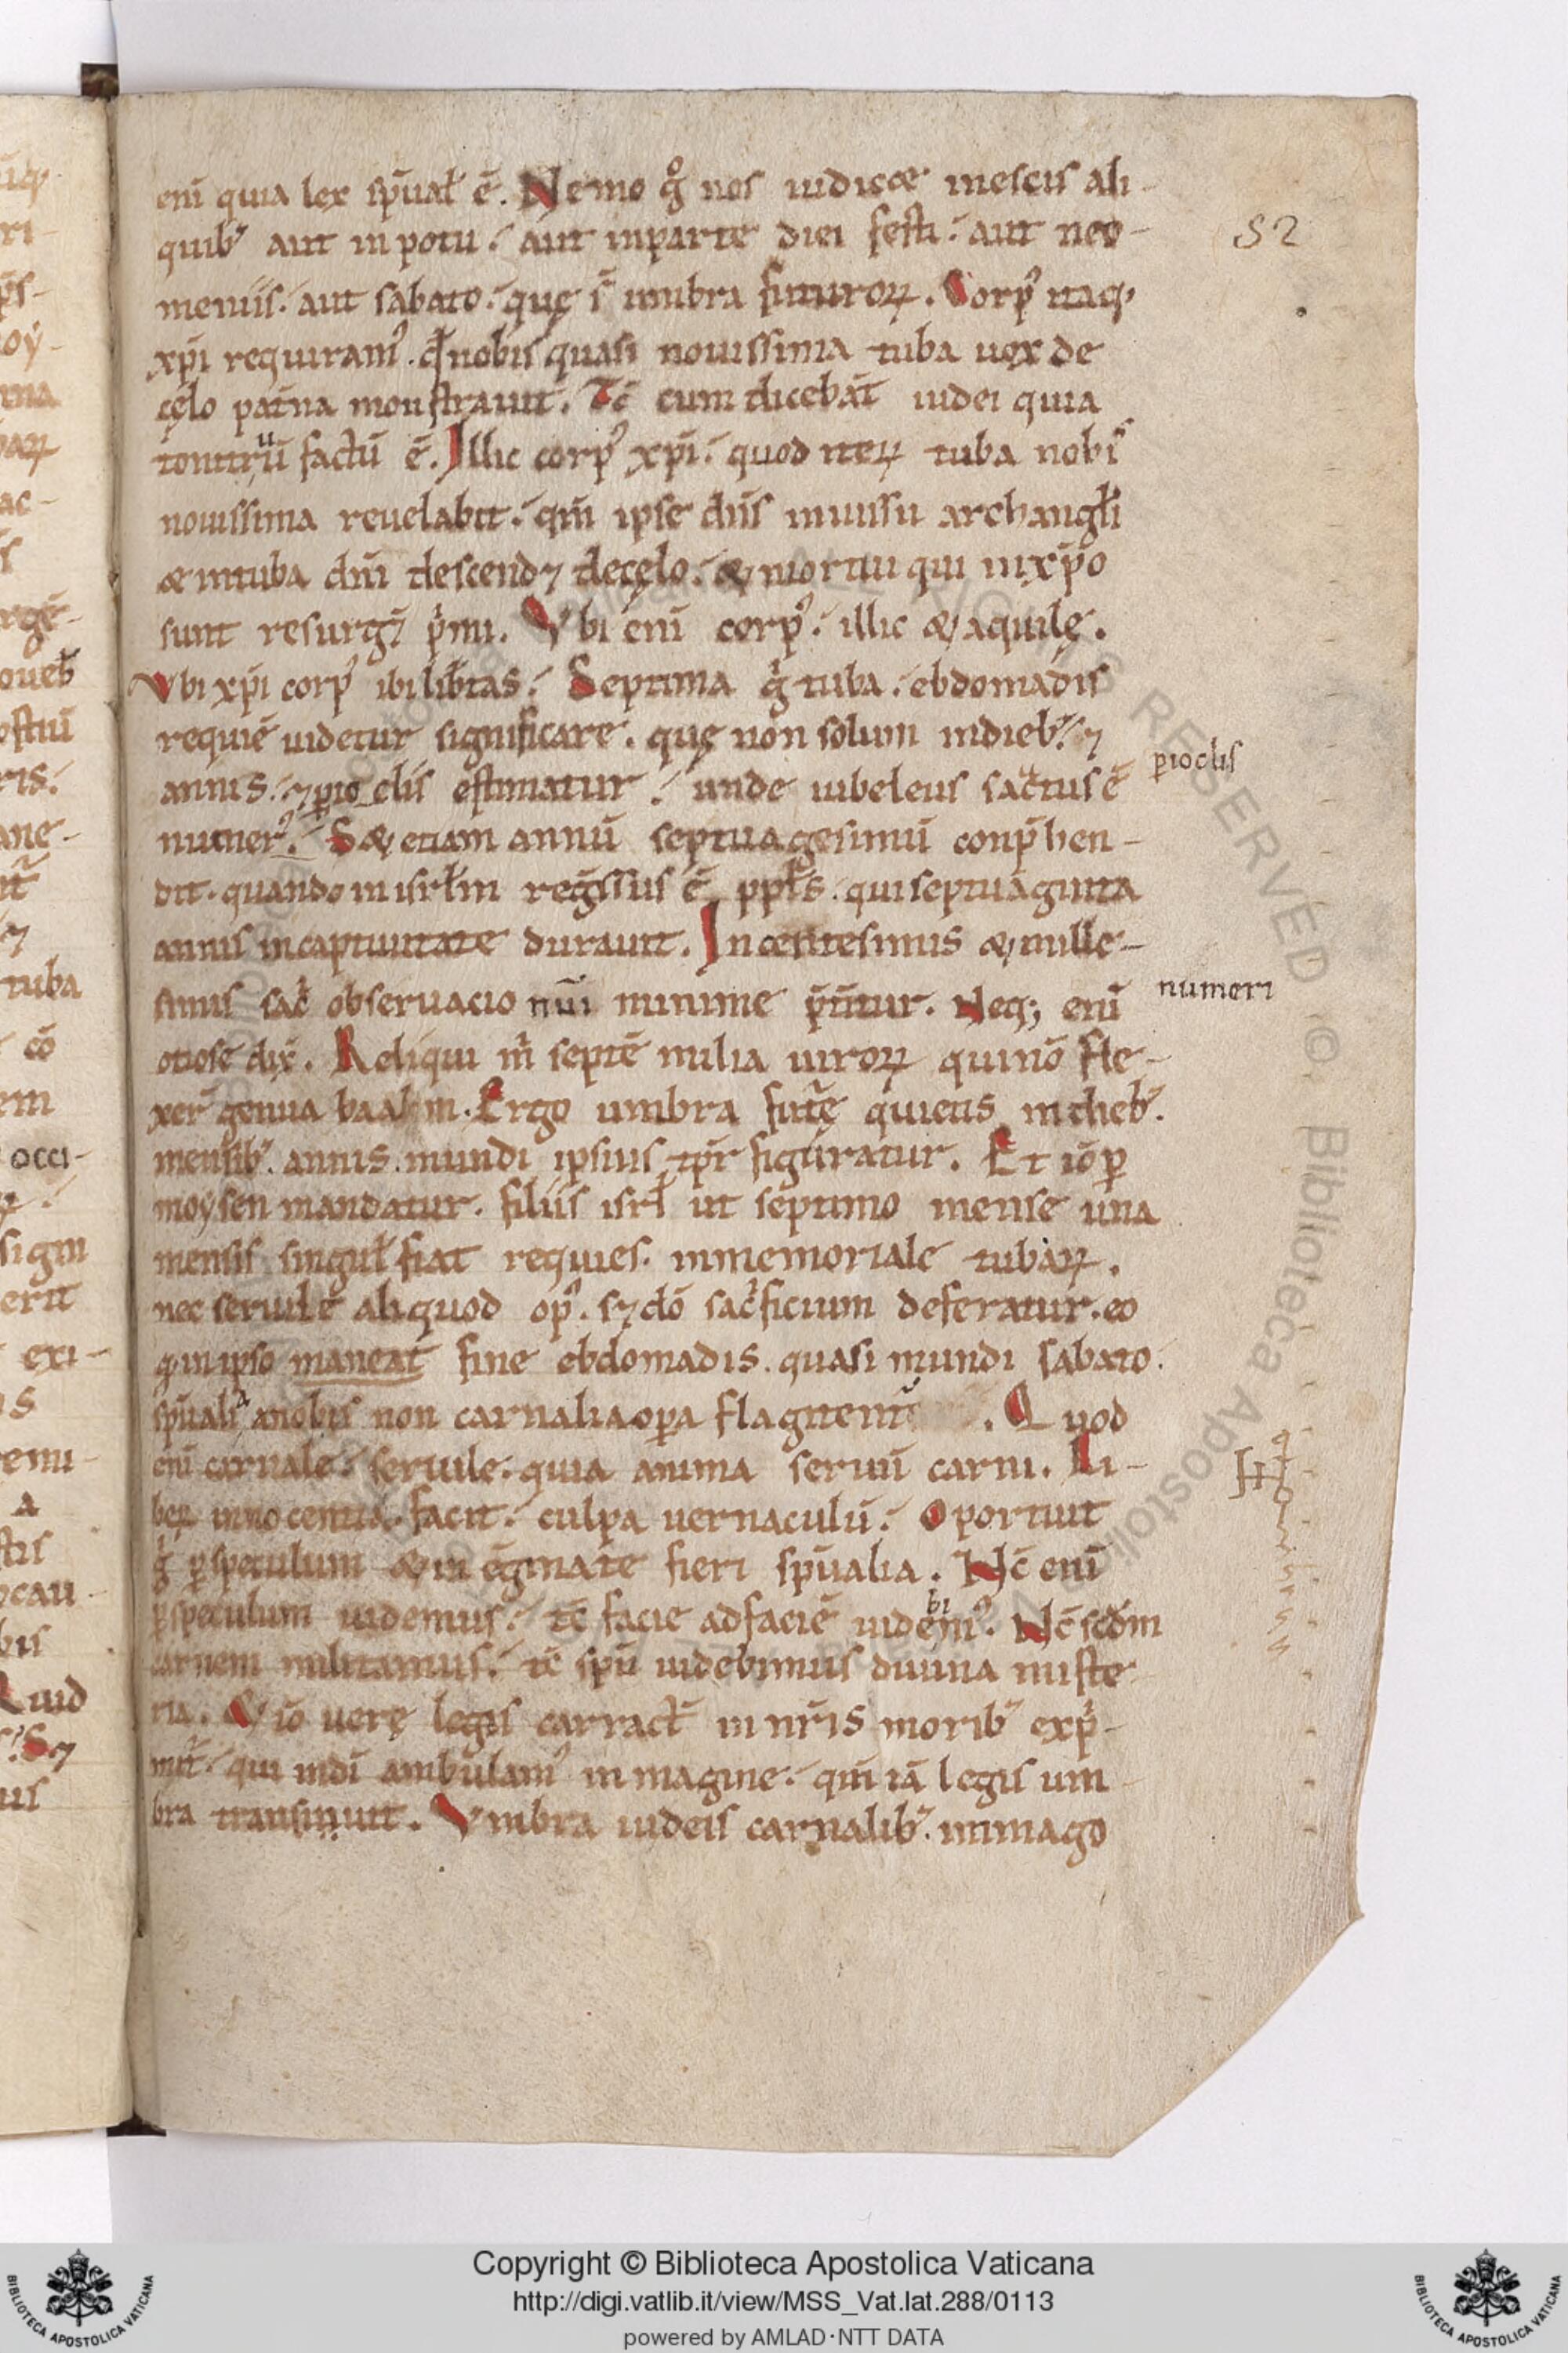 enī quia lex sp̄ual ē. Nemo gͦ nos iudicæ inescis ali-
quibꝰ aut in potu. aut inparte diei festi. aut neo-
meniis. aut sabato. quę s̄t umbra futuroꝝ. Corpꝰ itaqꝫ
xp̄i requiramꝰ. qđ nobis quasi nouissima tuba uox de
cęlo pat̄na monstrauit. Tc̄ cum dicebāt iudei quia
tonitruū factū ē. Illic corpꝰ xp̄i. quod iteꝝ tuba nobis
nouissima reuelabit. qm̄ ipse dn̄s iniussu archangłi
æ intuba dn̄i descend⁊ decęlo. & mortui qui inxp̄o
sunt resurg⁊ p̄mi. Vbi enī corpꝰ. illic & aquilę.
Vbi xp̄i corpꝰ ibi lib̄tas. Septima g̊ tuba. ebdomadis
requiē uidetur significare. quę non solum indiebꝰ. ⁊
annis. ⁊ ꝑioclis estimatur. unde iubeleus sactus ē
numerꝰ. S& etiam annū septuagesimū conp̄hen-
dit. quando in isrl̄m reḡssus ē ppl̄s. qui septuaginta
annis incaptiuitate durauit. In centesimis & mille-
simis sac̄ obseruacio nūi minime p̄mittitur. Neq; enī
otiose dix̄. Reliqui m̄ septē milia uiroꝝ qui nō fle-
xer̄ genua baalim. Ergo umbra fut̄ę quietis indiebꝰ.
mensibꝰ. annis. mundi ipsius tp̄r figuratur. Et iō ꝑ
moẏsen mandatur. filiis isrl̄ ut septimo mense una
mensis singul fiat requies. inmemoriale tubaꝝ.
nec seruile aliquod opꝰ. s⁊ dō sac̄ficium deferatur. eo
q in ipso maneat̄ fine ebdomadis. quasi mundi sabato.
sp̄ualia anobis non carnalia oꝑa flagitent᷑. Quod
enī carnale. seruile. quia anima seruit̄ carni. Li-
beꝝ innocentia facit. culpa uernaculū. Oportuit
g̊ ꝑ speculum & in eḡmate fieri sp̄ualia. Nc̄ enī
ꝑ speculum uidemus. tc̄ facie adfaciē uidebimꝰ. Nc̄ scđm
carnem militamus. tc̄ sp̄u uidebimus diuina miste
ria. & iō uerę legis carract̄ in nr̄is moribꝰ exp̄-
mit̄. qui indī ambulamꝰ in magine. qm̄ iā legis um
bra transiuit. Vmbra iudeis carnalibꝰ. inmago
52
ꝑioclis
numeri
Copyright © Biblioteca Apostolica Vaticana
http://digi.vatlib.it/view/MSS_Vat.lat.288/0113
powered by AMLAD·NTT DATA